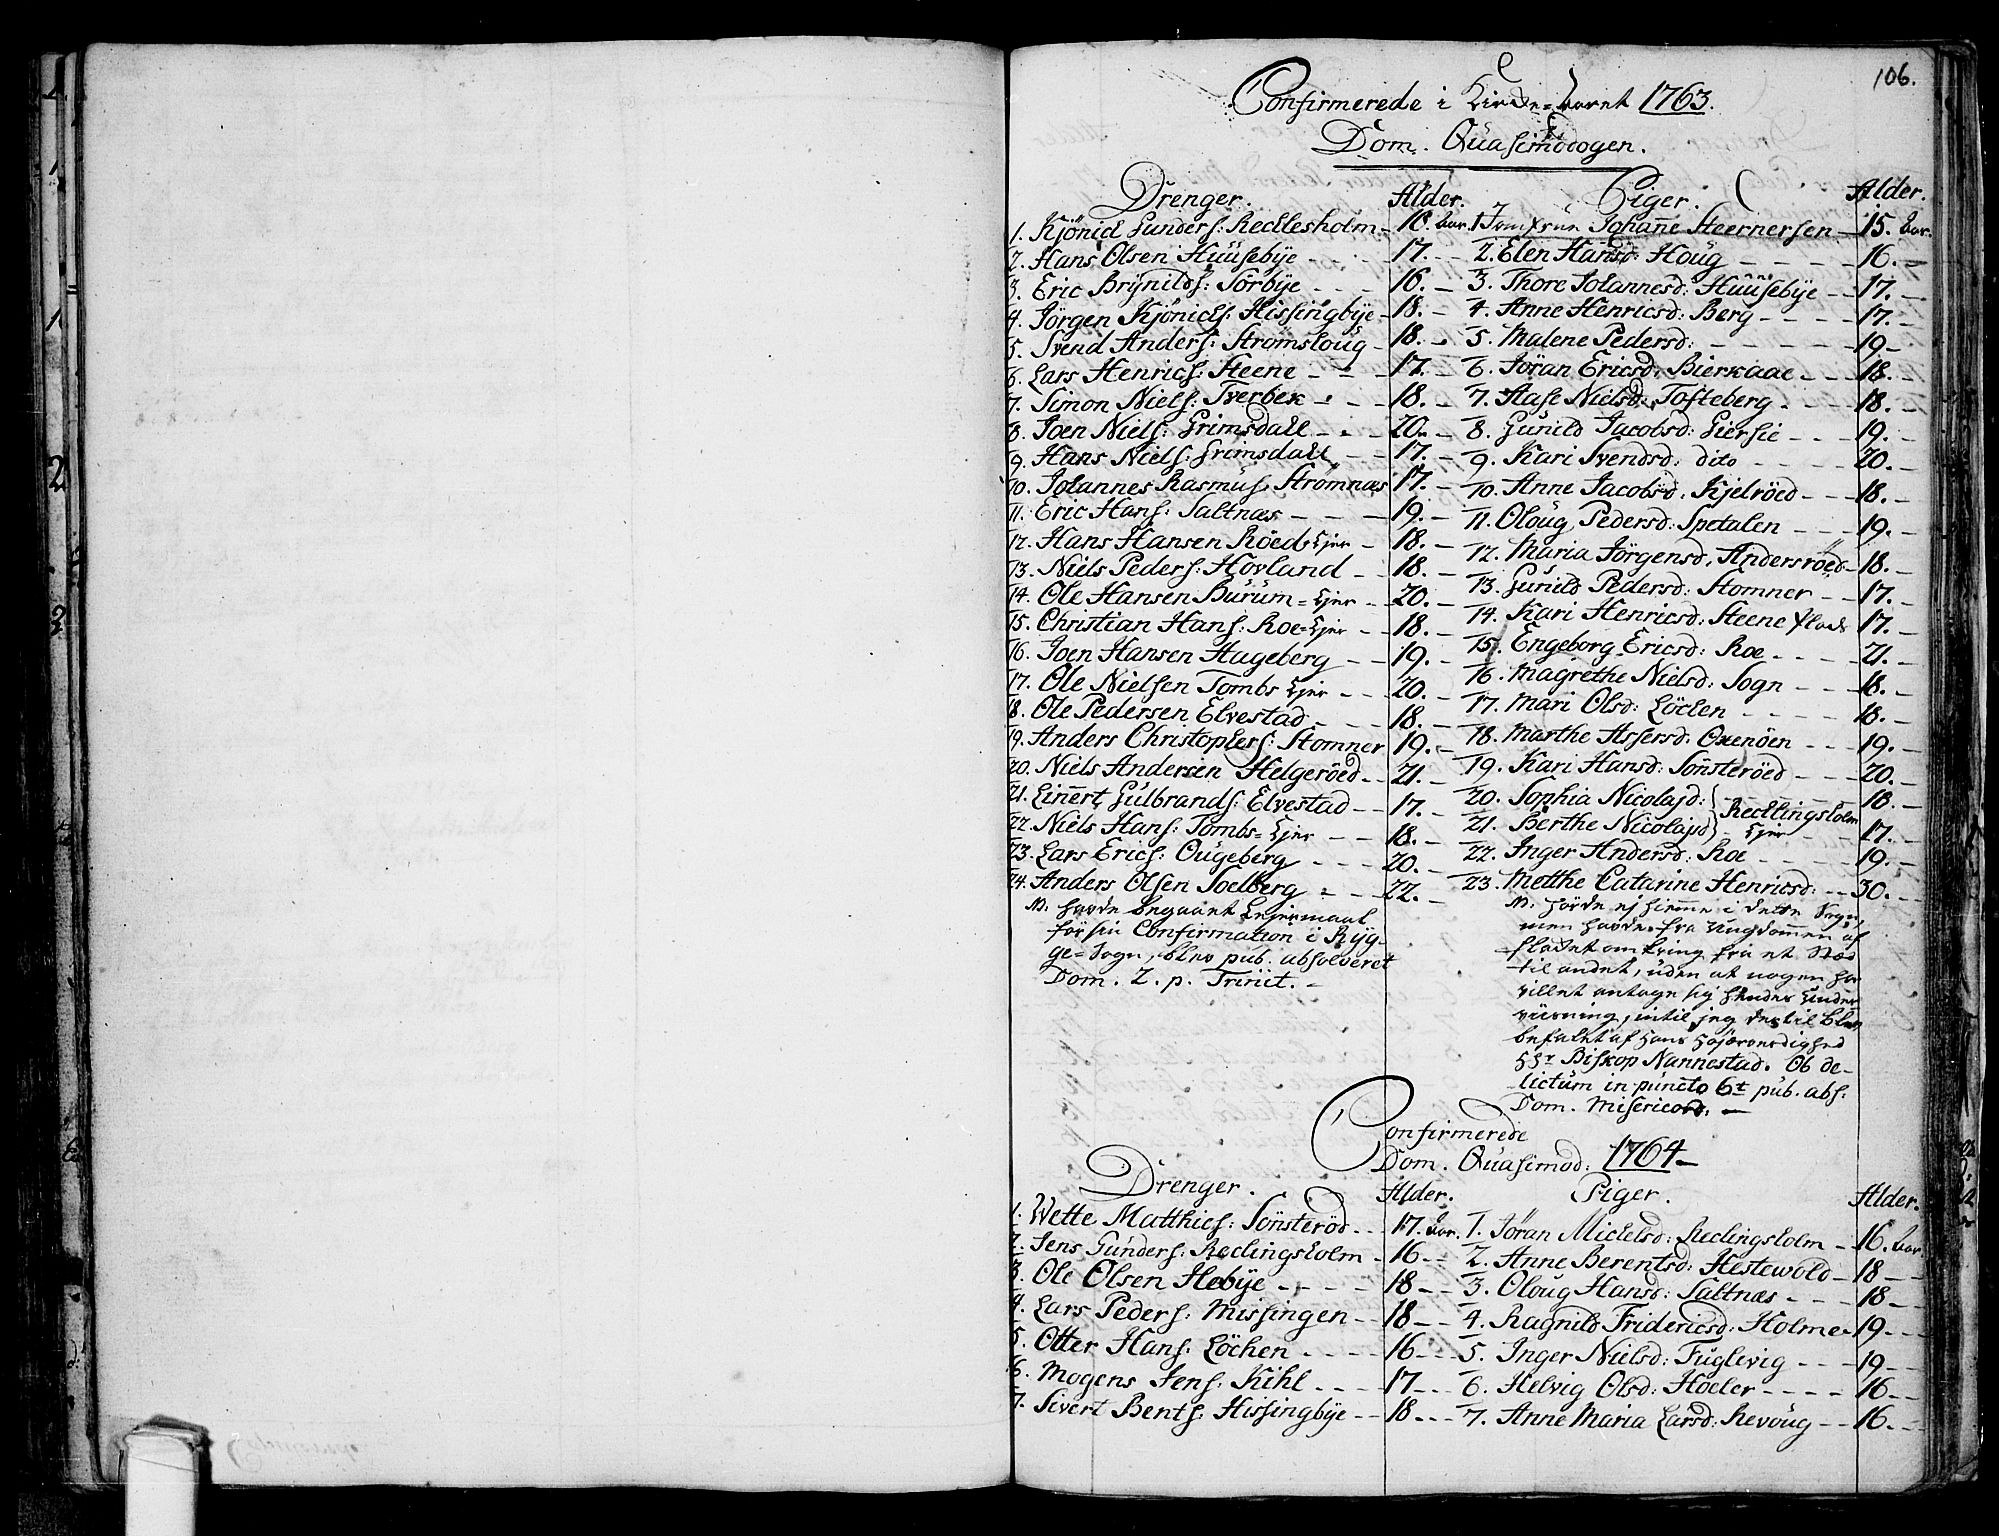 106.
Confirmerede i Kirke-Aaret 1763.
Dom. Quasimodogen.
Drenger. Alder.
1. Kjönid Gunders: Reclesholm - 18. Aar.
2. Hans Olsen Huusebye - 17.
3. Eric Brynilds: Sörbye - 16.
4. Jörgen Kjönics: Hissingbye - 18.
5. Svend Anders: Strømshoug - 18.
6. Lars Henrics: Steene - 17.
7. Simon Niels: Tverbek - 18.
8. Joen Niels: Grimsdall - 20.
9. Hans Niels: Grimsdall - 17.
10. Johannes Rasmus. Strømnæs 17.
11. Eric Hans: Saltnæs - 19.
12. Hans Hansen Röed-Ejer - 18.
13. Niels Peders: Hovland - 18.
14. Ole Hansen Burum-Ejer - 20.
15. Christian Hans: Roe-Ejer - 18.
16. Joen Hansen Augeberg - 19.
17. Ole Nielsen Tombs Ejer - 20.
18. Ole Pedersen Elvestad - 18.
19. Anders Christophers: Stomner 19.
20. Niels Andersen Helgeröed - 21.
21. Linert Gulbrands: Elvestad - 17.
22. Niels Hans: Tombs-Ejer - 18.
23. Lars Erics: Ougeberg - 20.
24. Anders Olsen Soelberg - 22.
N: havde begaaet Lejermaal
för sin Confirmation i Ryg-
ge-Sogn, blev pub. absolveret
Dom. 2. p. Trinit.
Piger. Alder.
1. Jomfrue Johanne Steernersen - 15. Aar.
2. Elen Hansd: Houg - 16.
3. Thore Johannesd: Huusebye - 17.
4. Anne Henricsd: Berg - 17.
5. Malene Pedersd: - 19
6. Jöran Ericsd: Bierkaae - 18.
7. Aase Nielsd: Tofteberg - 18.
8. Gunild Jacobsd: Giersie - 19.
9. Kari Svendsd: dito - 20.
10. Anne Jacobsd. Kjelröed - 18.
11. Oloug Pedersd: Spetalen - 19.
12. Maria Jörgensd. Andersröed - 18.
13. Gunild Pedersd: Stomner - 17.
14. Kari Henricsd: Steene Plads 17.
15. Engeborg Ericsd: Roe - 21.
16. Magrethe Nielsd: Sogn - 18.
17. Mari Olsd: Löchen - 18.
18. Marthe Assersd. Oxenöen - 19.
19. Kari Hansd: Sönsteröed - 20.
20. Sophia Nicolajd: } Reclingsholm 18.
21. Berthe Nicolajd } Ejer 17.
22. Inger Andersd: Roe - 19.
23. Metthe Catarine Henricsd: - 30.
N: havde ej hiemme i dette Sogn,
men havde fra Ungdommen af
flakket omkring fra et Sted
til andet, uden at nogen har
villet antage sig hendes Under
viisning, intil jeg dertil blev
befalet af Hans Höjærverdighed
Hr Biskop Nannestad. Ob de-
lictum in puncto 6t pub. abs.
Dom. Misericord:
Confirmerede
Dom. Quasimod: 1764
Drenger. Alder.
1. Wette Matthies: Sönsteröd - 17. Aar.
2. Jens Gunders: Reclingsholm - 16
3. Ole Olsen Hebye - 18
4. Lars Peders: Missingen - 18
5. Otter Hans: Löchen - 16
6. Mogens Jens: Kihl - 17
7. Sivert Bents: Hissingbye - 18
Piger. Alder.
1. Jöran Michelsd: Reclingsholm - 16. Aar.
2. Anne Berentsd: Hestewold - 18
3. Oloug Hansd: Saltnæs - 18
4. Ragnild Fridericsd: Holme - 19
5. Inger Nielsd: Fuglevig - 19
6. Helvig Olsd: Hoeler - 16
7. Anne Maria Larsd: Revoug - 16